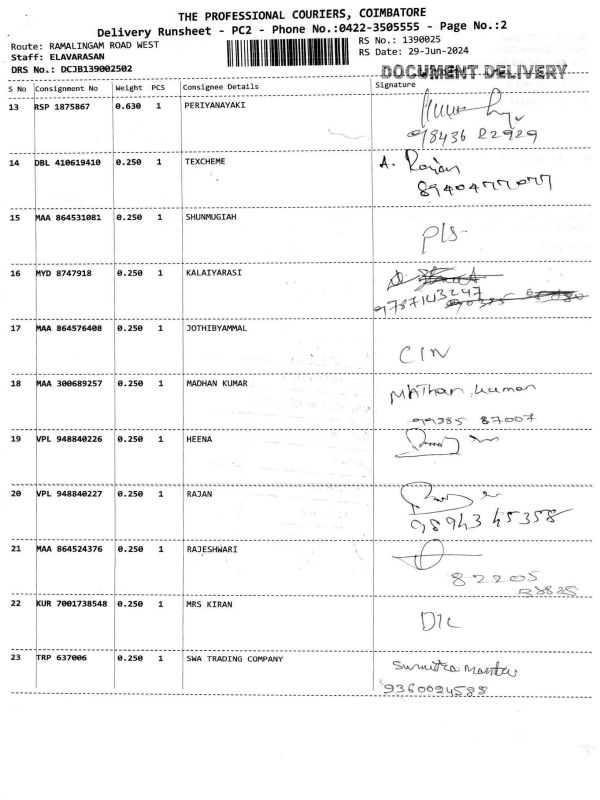 THE PROFESSIONAL COURIERS, COIMBATORE
Delivery Runsheet - PC2 - Phone No.:0422-3505555 - Page No.:2
Route: RAMALINGAM ROAD WEST
RS No.: 1390025
Staff: ELAVARASAN
RS Date: 29-Jun-2024
DRS No.: DCJB139002502
DOCUMENT DELIVERY
S No Consignment No Weight PCS Consignee Details Signature
13 RSP 1875867 0.630 1 PERIYANAYAKI
98436 22929
14 DBL 410619410 0.250 1 TEXCHEME A. Rajan
8940477077
15 MAA 864531081 0.250 1 SHUNMUGIAH
PLS-
16 MYD 8747918 0.250 1 KALAIYARASI
9787143247
17 MAA 864576408 0.250 1 JOTHIBYAMMAL
CIN
18 MAA 300689257 0.250 1 MADHAN KUMAR MAThan kumar
99385 87007
19 VPL 948840226 0.250 1 HEENA
20 VPL 948840227 0.250 1 RAJAN
98943 45358
21 MAA 864524376 0.250 1 RAJESHWARI
82205
22 KUR 7001738548 0.250 1 MRS KIRAN
DIL
23 TRP 637006 0.250 1 SWA TRADING COMPANY
9360024588